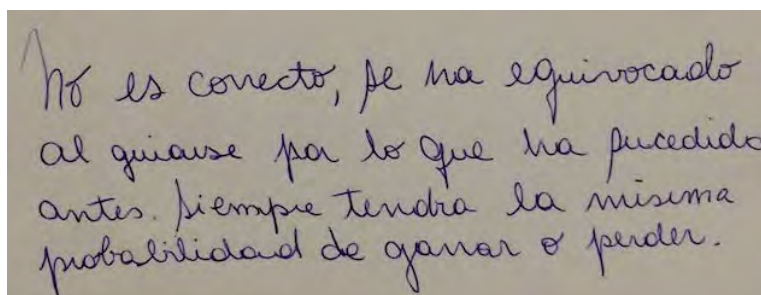 No es correcto, se ha equivocado
al guiarse por lo que ha sucedido
antes. Siempre tendra la misma
probabilidad de ganar o perder.